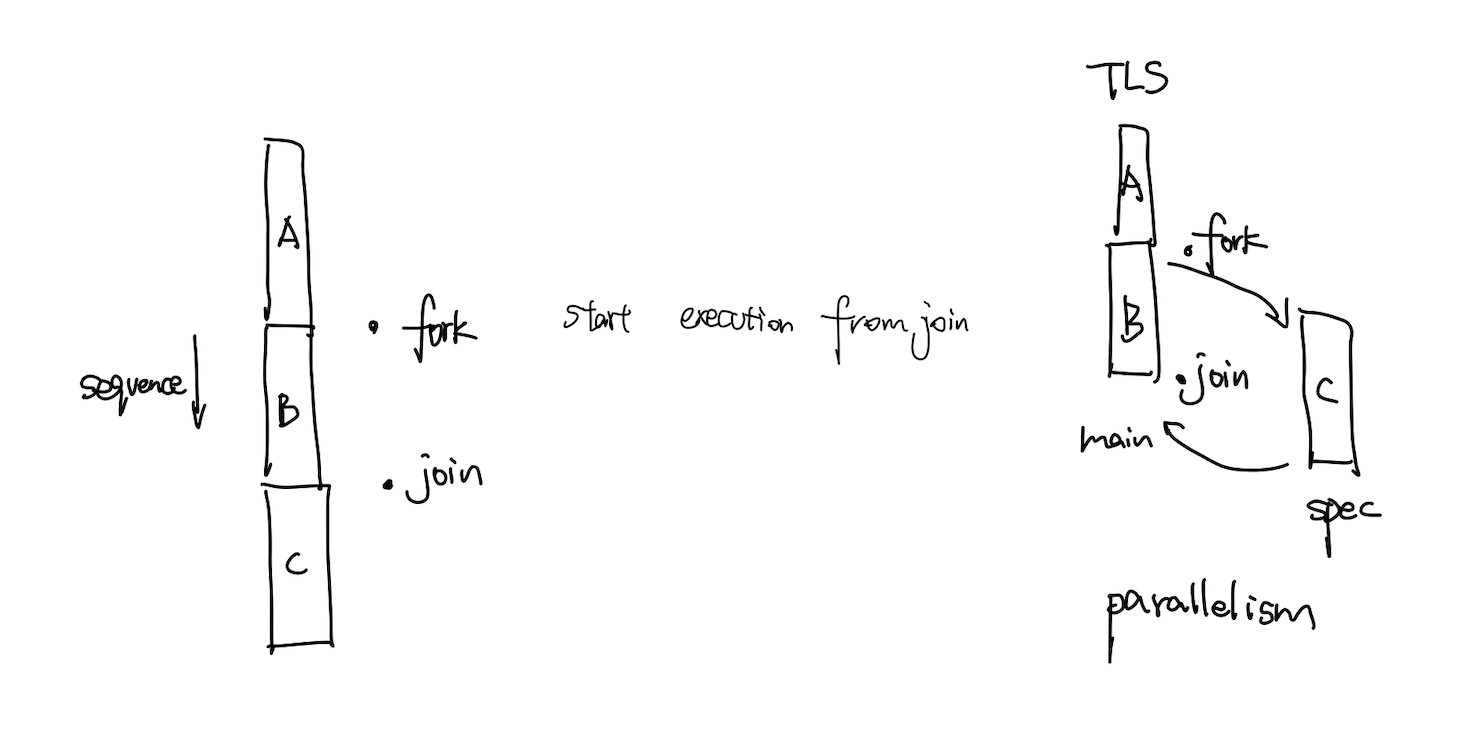 A
B
C
sequence
. fork
. join
start execution from join
TLS
A
B
. fork
. join
main
C
spec
parallelism